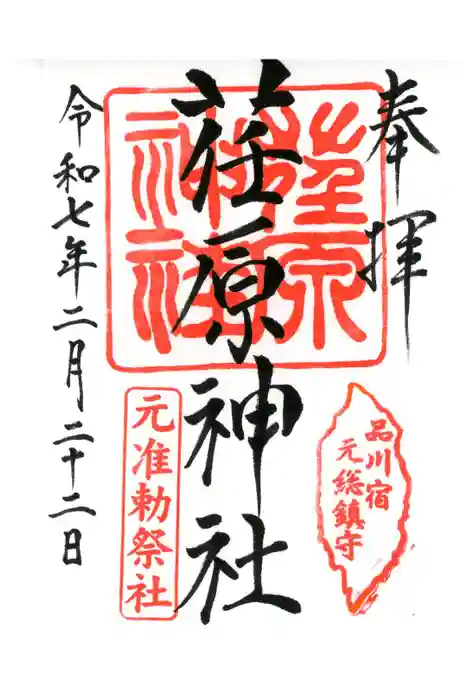 奉拝
品川宿
元総鎮守
荏原神社
荏原
神社
元准勅祭社
令和七年二月二十二日